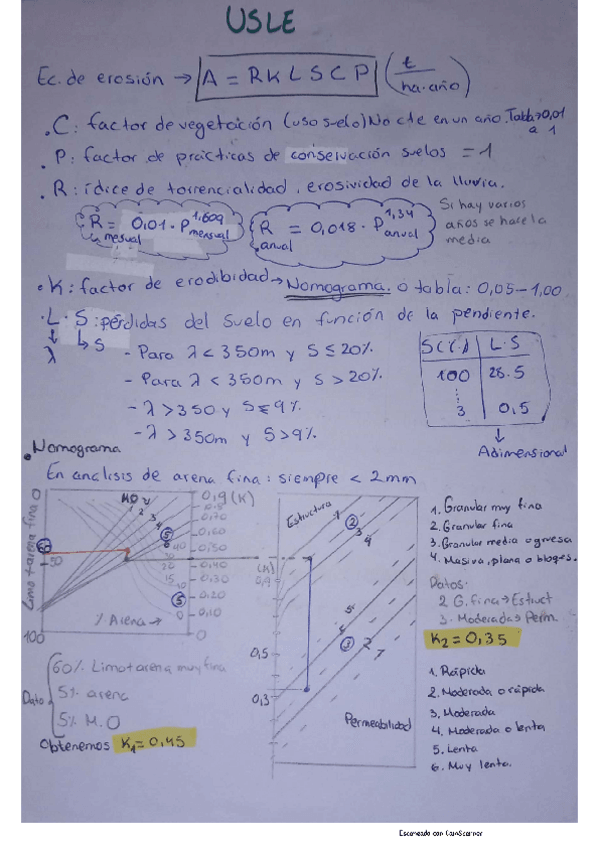 USLE
Ec. de erosión → A = R K L S C P (t / ha·año)
. C: factor de vegetación (uso suelo) No cte en un año. Tabla > 0,01 a 1
. P: factor de prácticas de conservación suelos = 1
. R: ídice de torrencialidad, erosividad de la lluvia.
R mesual = 0,01 · P mensual ^1,609
R anual = 0,018 · P anual ^1,34
Si hay varios
años se hace la
media
. K: factor de erodibidad → Nomograma. o tabla: 0,05 – 1,00
. L · S: pérdidas del suelo en función de la pendiente.
↓ ↳ S
λ
- Para λ < 350m y S ≤ 20%.
- Para λ < 350m y S > 20%.
- λ > 350 y S ≤ 9%.
- λ > 350m y S > 9%.
S(%) | L·S
100 | 28.5
3 | 0,5
↓
Adimensional
. Nomograma
En analisis de arena fina: siempre < 2mm
Limo + arena fina
0
50
100
60
% MO
1 2 3 4
5
% Arena →
0,9 (K)
0,70
0,60
0,50
0,40
0,30
0,20
0,10
0
40
20
15
10
5
0
Estructura
1 2 3 4
(K)
0,5
0,3
3
2
1
Permeabilidad
1. Granular muy fina
2. Granular fina
3. Granular media o gruesa
4. Masiva, plana o bloques.
Datos:
2 G. fina → Estruct
3. Moderada → Perm.
K2 = 0,35
1. Rápida
2. Moderada o rápida
3. Moderada
4. Moderada o lenta
5. Lenta
6. Muy lenta.
Dato
60% Limo + arena muy fina
5% arena
5% M.O
Obtenemos K1 = 0,45
Escaneado con CamScanner